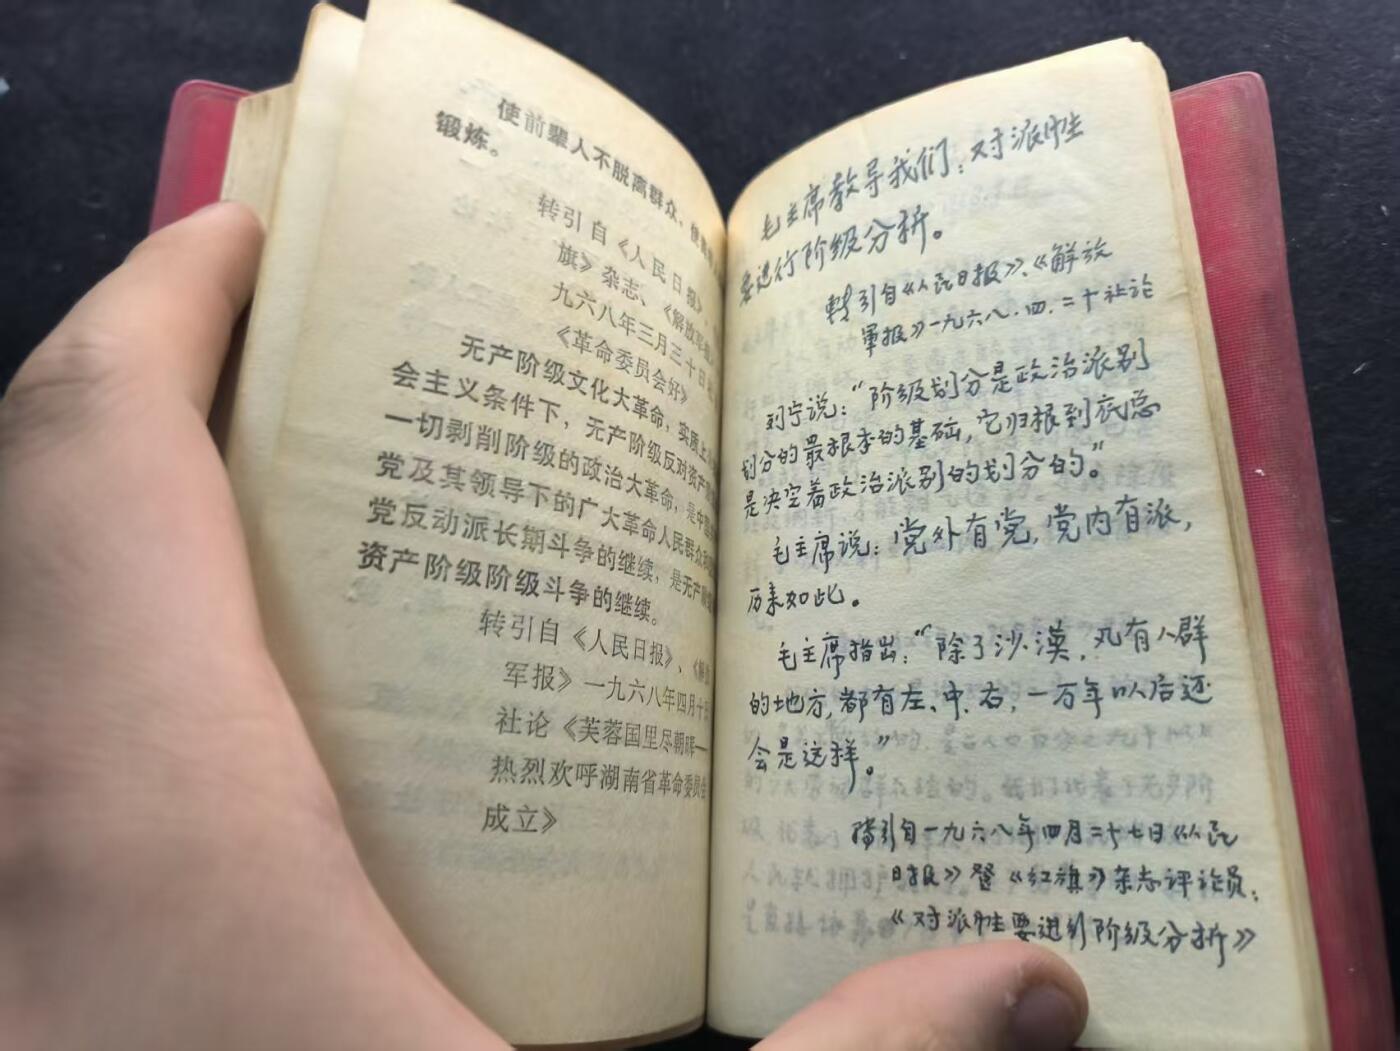 使前辈人不脱离群众、使青
锻炼。
转引自《人民日报》、
旗》杂志、《解放军报
九六八年三月三十日
《革命委员会好》
无产阶级文化大革命，实质上
会主义条件下，无产阶级反对资产
一切剥削阶级的政治大革命，是中国
党及其领导下的广大革命人民群众和
党反动派长期斗争的继续，是无产阶级
资产阶级阶级斗争的继续。
转引自《人民日报》、《解放
军报》一九六八年四月十日
社论《芙蓉国里尽朝晖—
热烈欢呼湖南省革命委员会
成立》
毛主席教导我们：对派性
要进行阶级分析。
转引自《人民日报》、《解放
军报》一九六八.四.二十社论
列宁说：“阶级划分是政治派别
划分的最根本的基础，它归根到底总
是决定着政治派别的划分的。”
毛主席说：党外有党，党内有派，
历来如此。
毛主席指出：“除了沙漠，凡有人群
的地方，都有左、中、右，一万年以后还
会是这样。”
转引自一九六八年四月二十七日《人民
日报》登《红旗》杂志评论员：
《对派性要进行阶级分析》